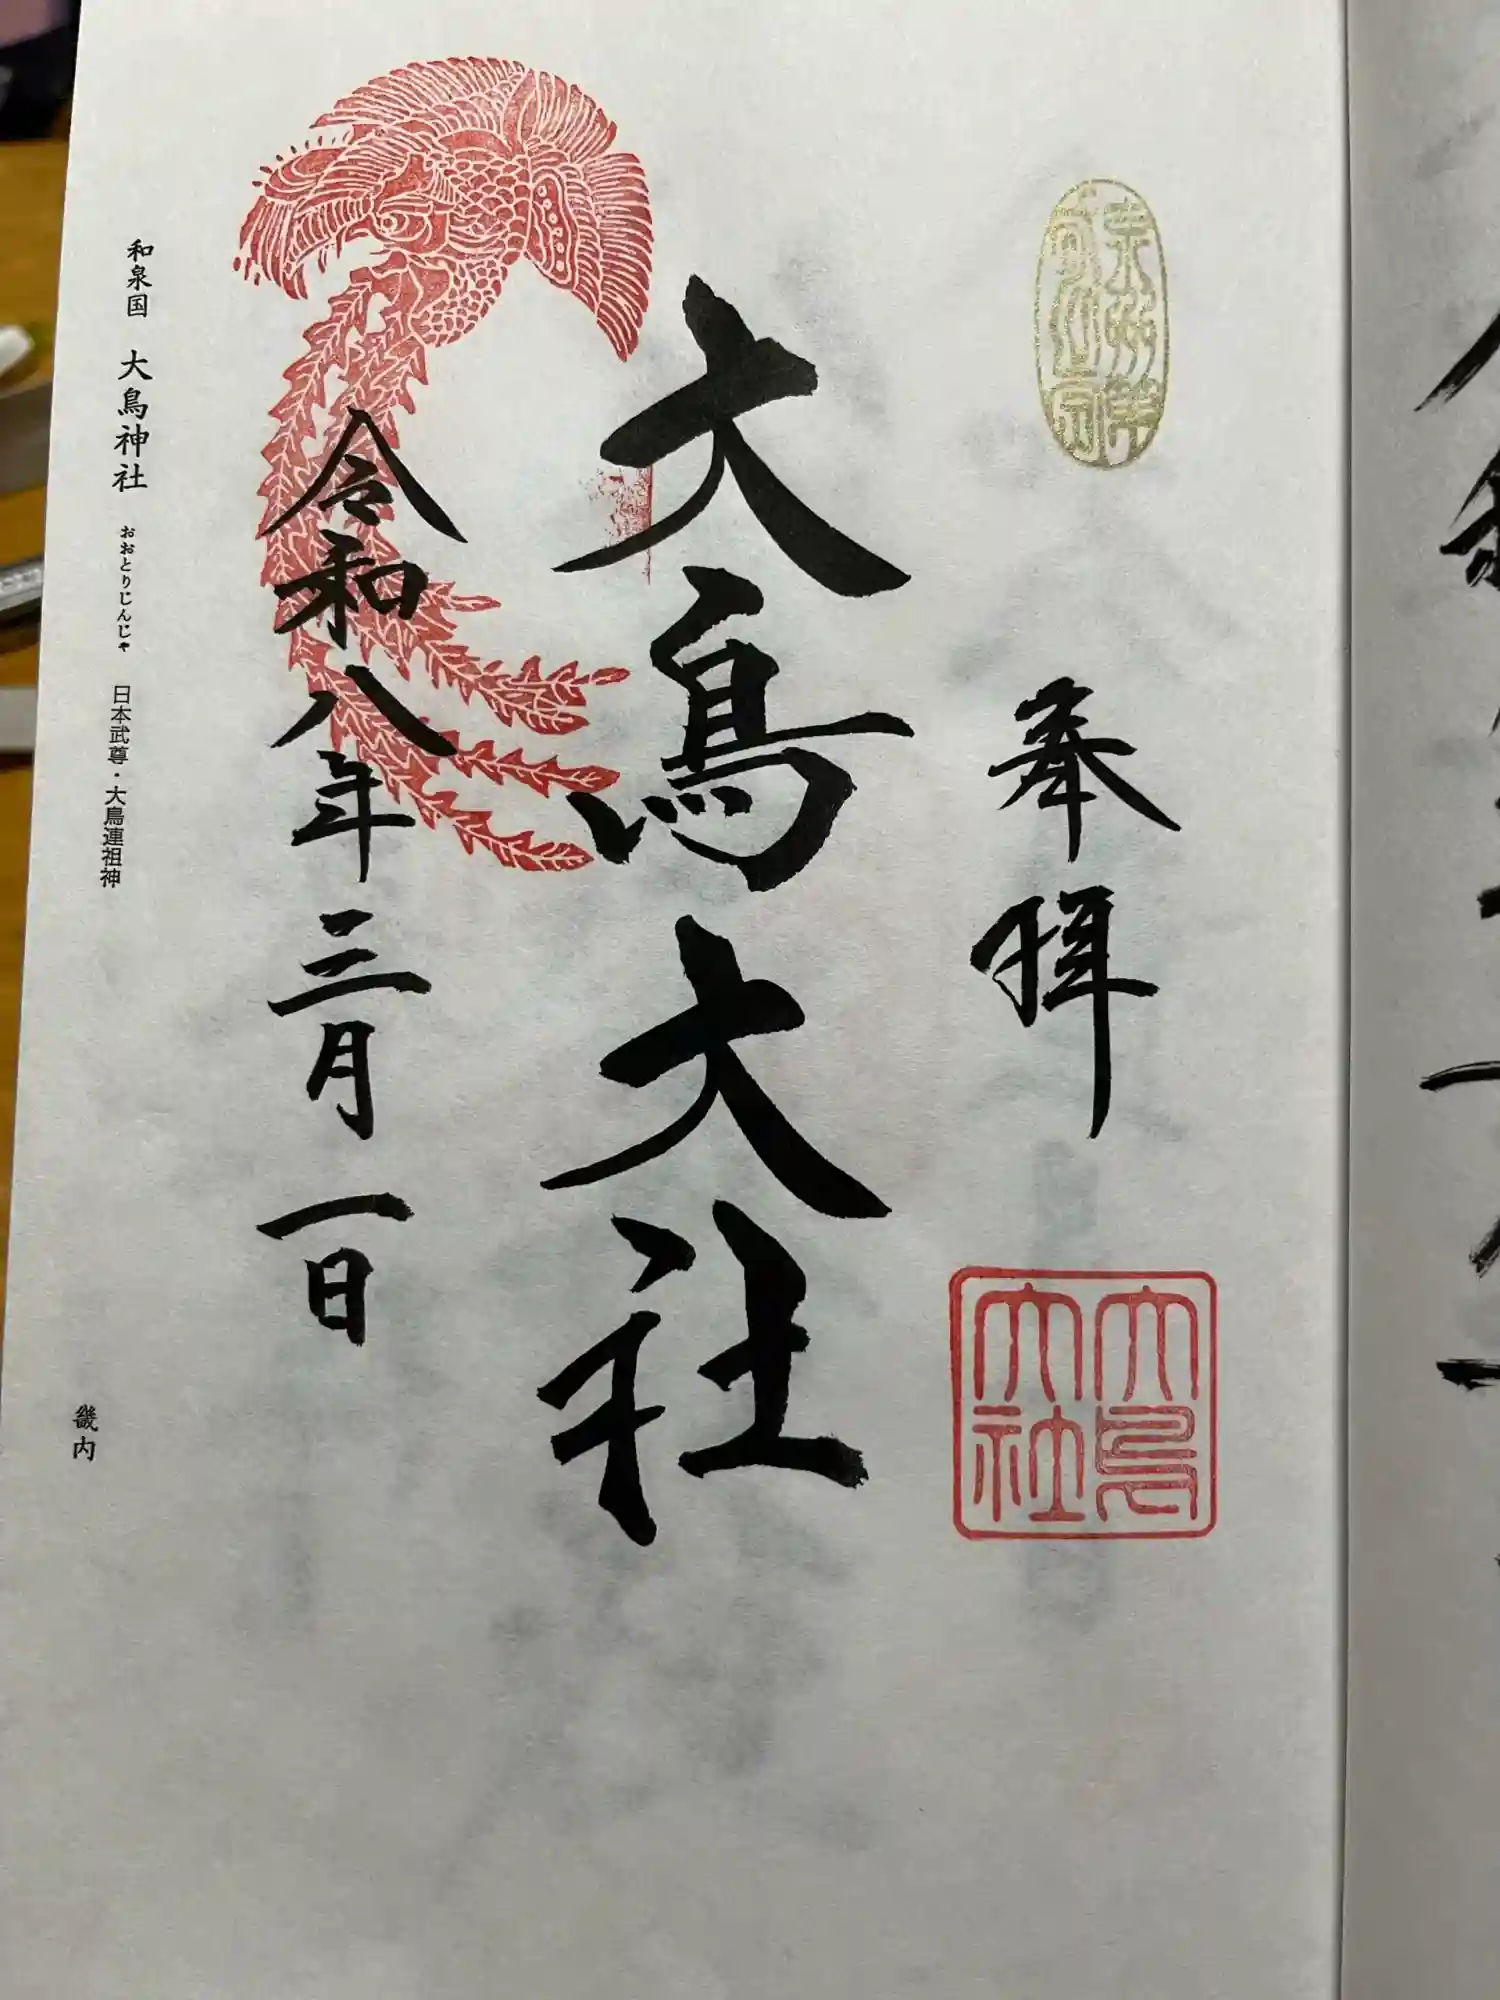 奉拝
大鳥大社
大鳥
大社
令和八年三月一日
和泉国 大鳥神社 おおとりじんじゃ 日本武尊・大鳥連祖神
畿内